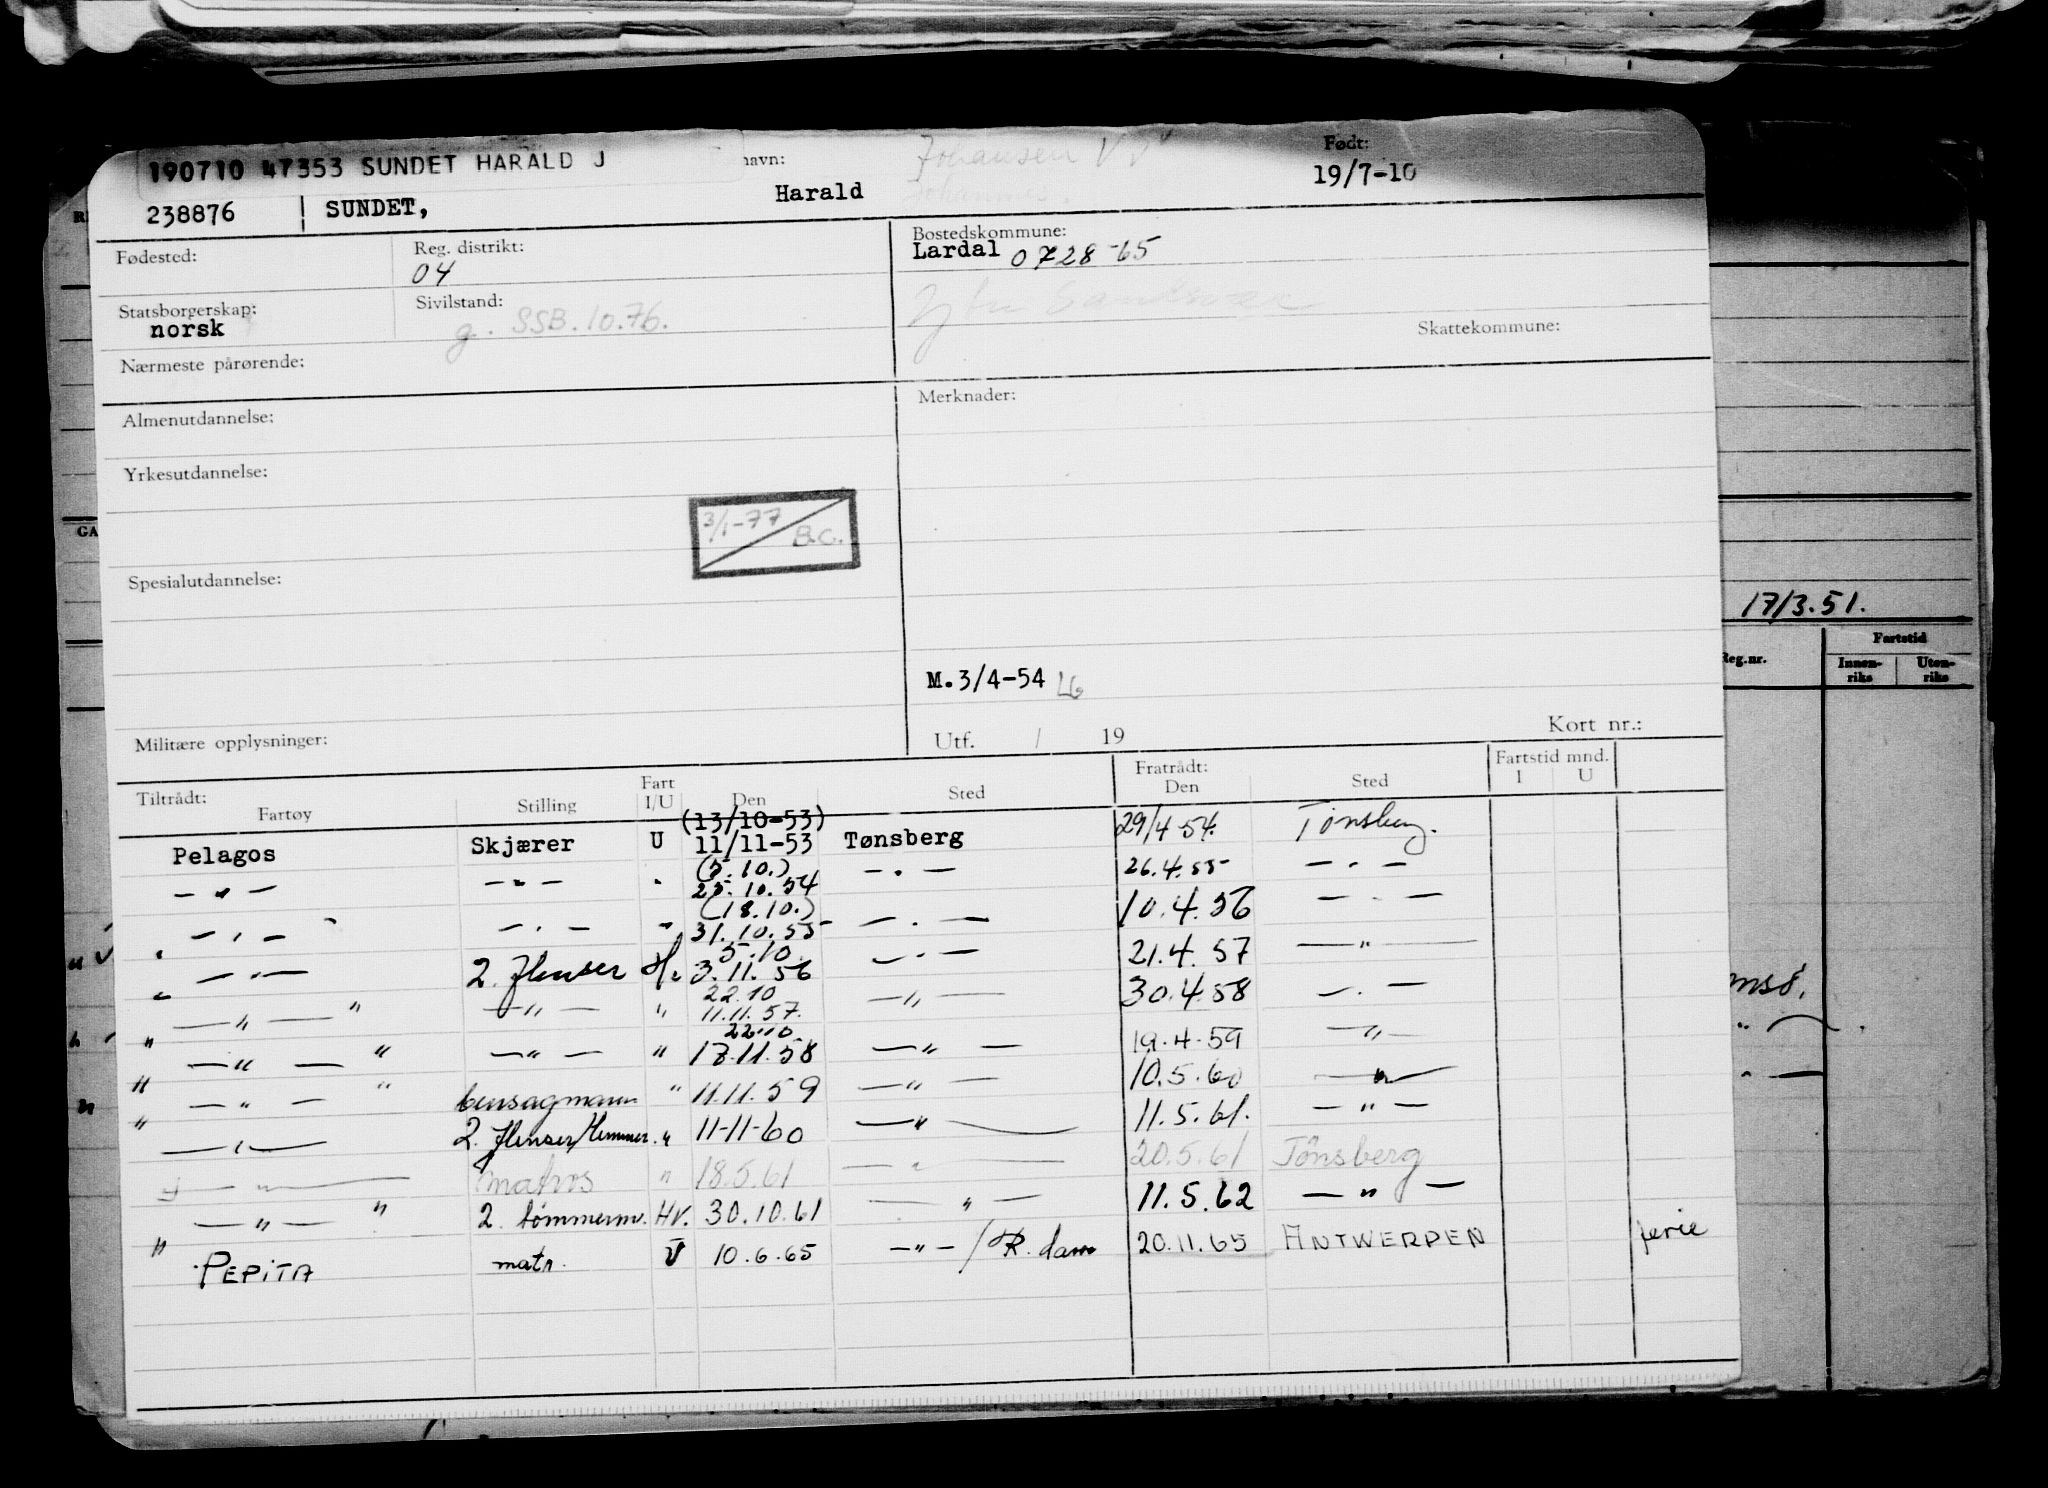 190710 47353 SUNDET HARALD J
navn: Johansen Født:
238876 SUNDET, Harald Johannes. 19/7-10
Fødested: Reg. distrikt: 04 Bostedskommune: Lardal 0728-65
Statsborgerskap: norsk Sivilstand: g. SSB.10.76.
Skattekommune:
Nærmeste pårørende:
Almenutdannelse: Merknader:
Yrkesutdannelse:
3/1-77 B.C.
Spesialutdannelse:
17/3.51.
Reg.nr. Fartstid
Innen-riks Uten-riks
M.3/4-54 LG
Militære opplysninger: Utf. / 19 Kort nr.:
Tiltrådt: Fratrådt: Fartstid mnd.
Fartøy Stilling Fart I/U Den Sted Den Sted I U
(13/10-53)
Pelagos Skjærer U 11/11-53 Tønsberg 29/4 54. Tønsberg.
(5.10.)
— " — — " — " 25.10.54 — " — 26.4.55 — " —
(18.10.)
— " — — " — " 31.10.55 — " — 10.4.56 — " —
5.10.
" — " — 2. flenser Hv 3.11.56 — " — 21.4.57 — " —
22.10
" — " — " — " — " 11.11.57. — " — 30.4.58 — " —
22.10
" — " — " — " — " 18.11.58 — " — 19.4.59 — " —
" — " — " bensagmann " 11.11.59 — " — 10.5.60 — " —
" — " — 2. flenser/Hemmer. " 11-11-60 — " — 11.5.61. — " —
— " — matros " 18.5.61 — " — 20.5.61 Tönsberg
— " — " 2. tømmerm. Hv. 30.10.61 — " — 11.5.62 — " —
" PEPITA matr. U 10.6.65 — " — / R.dam 20.11.65 ANTWERPEN ferie